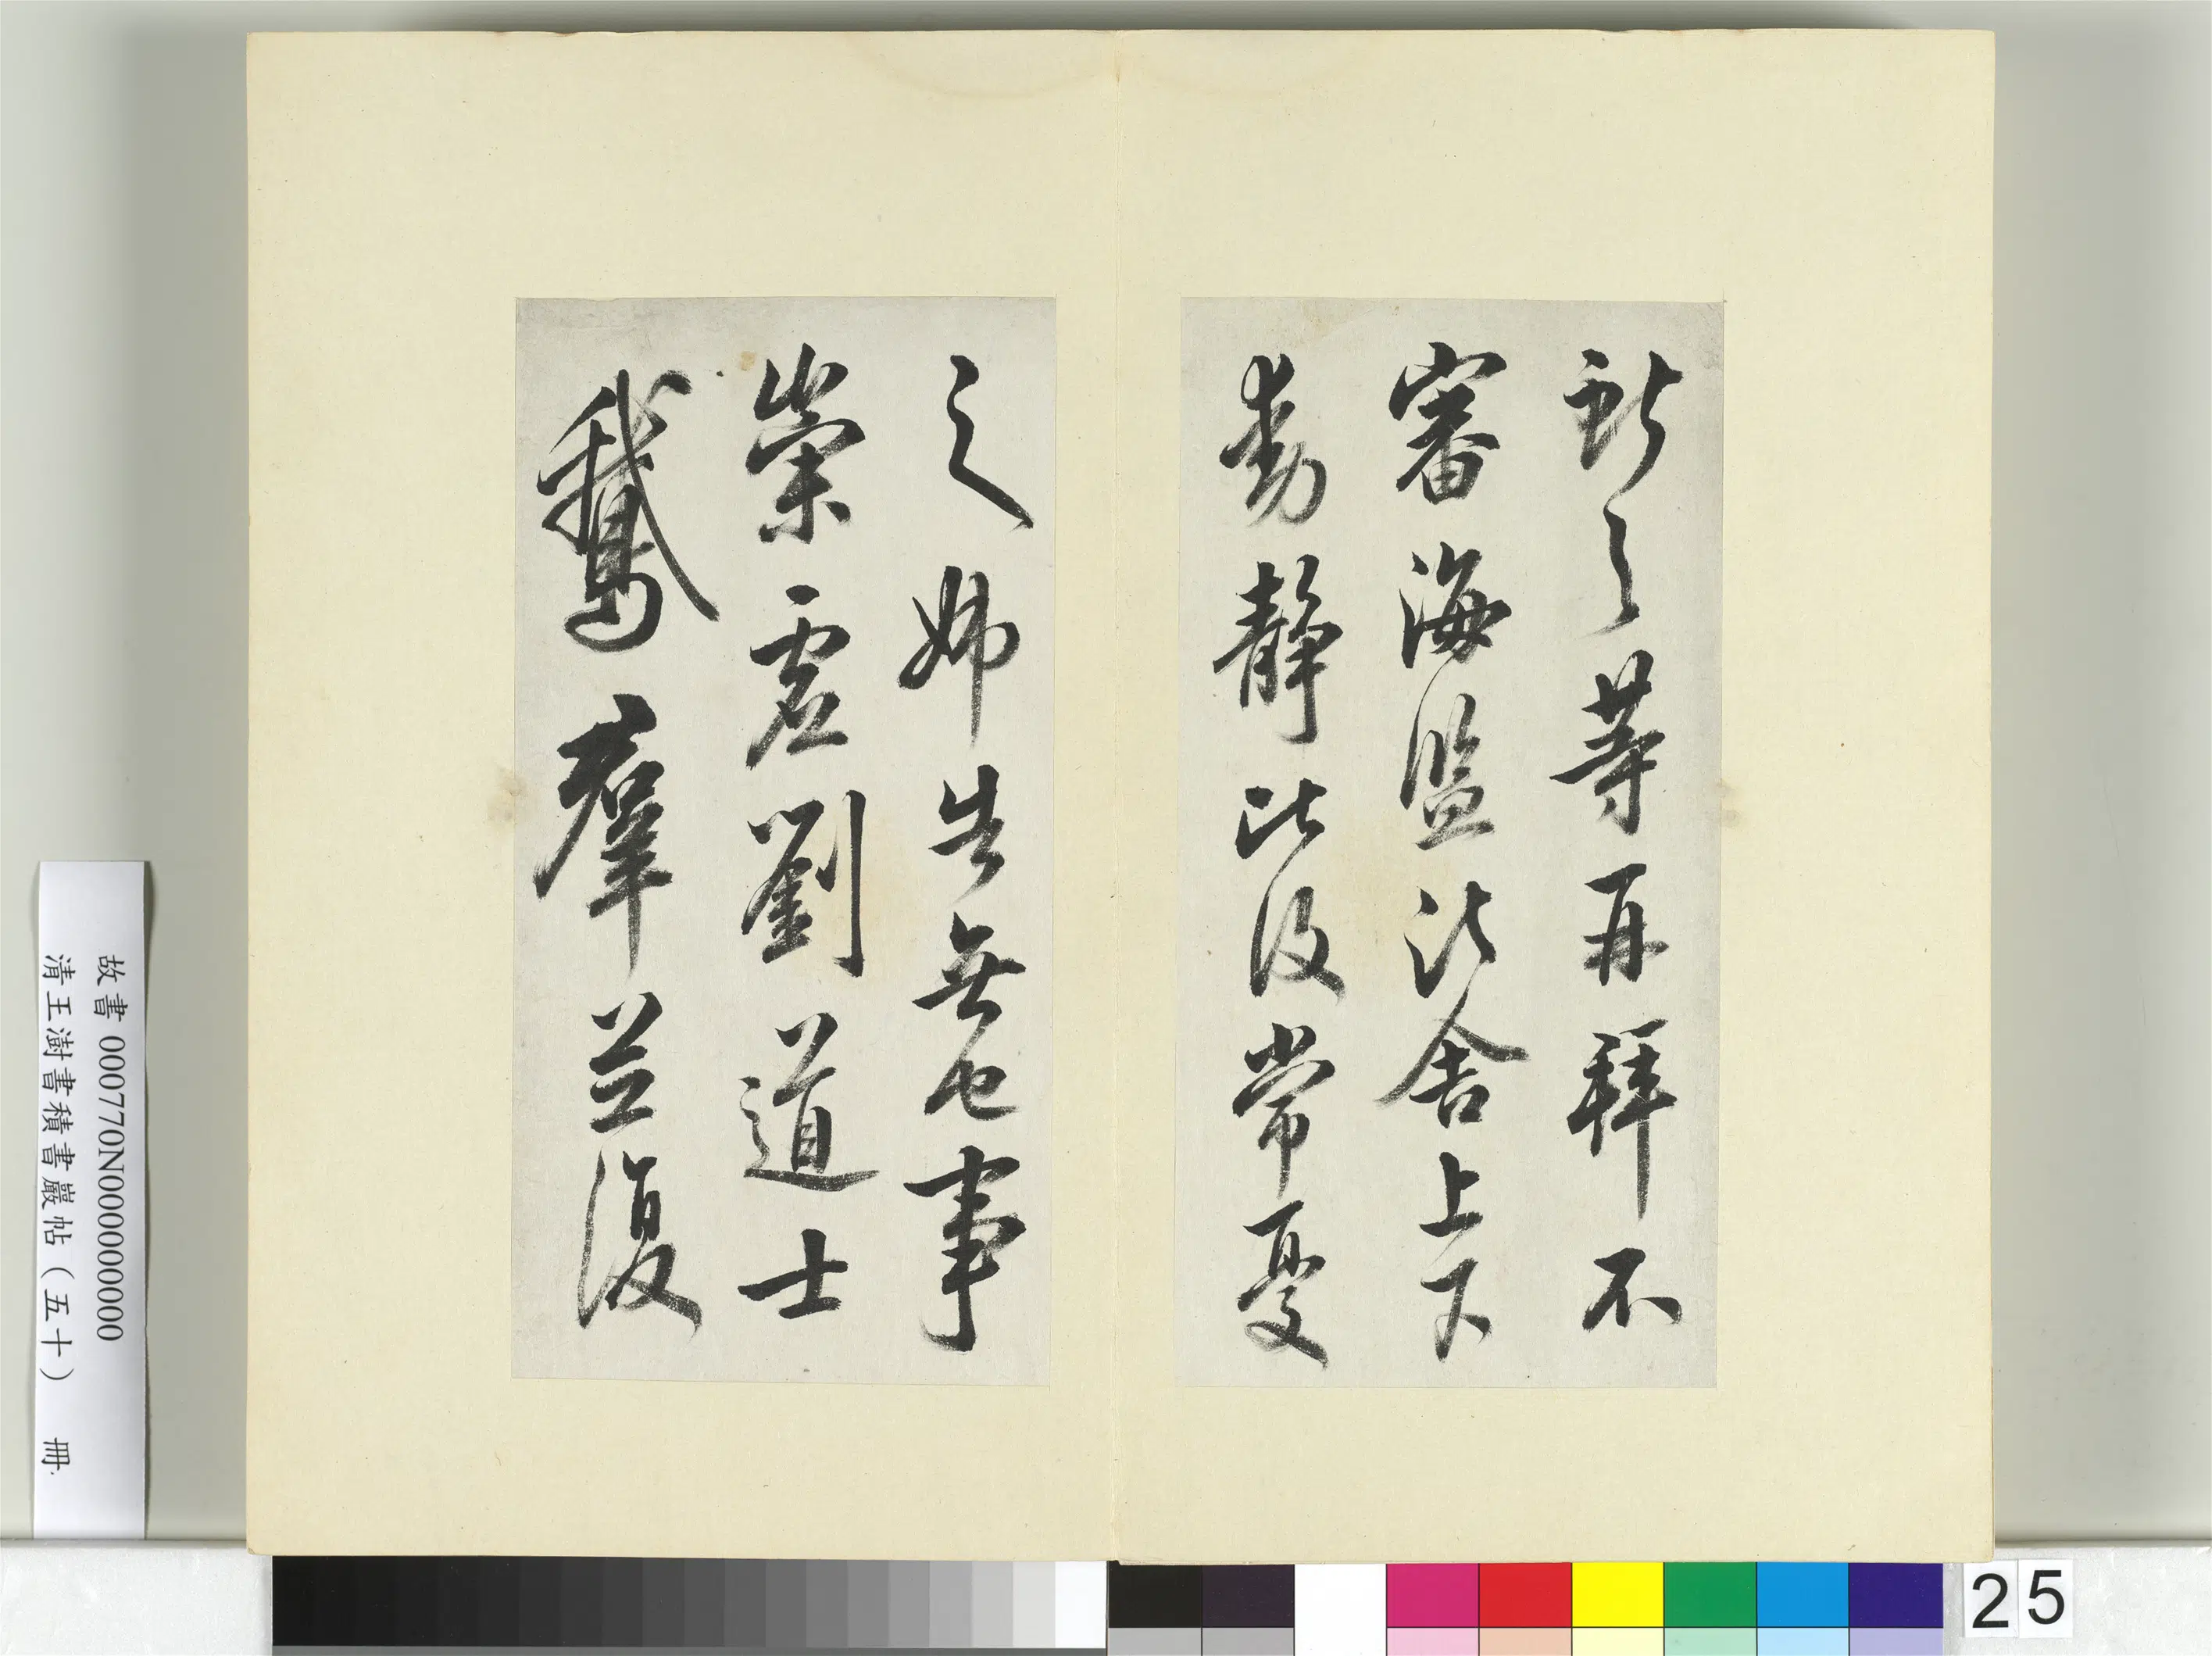 獻之等再拜不
審海鹽諸舍上下
動靜比復常憂
之姊告無他事
崇虛劉道士
鵝羣並復
故書 000770N000000000
清王澍書積書巖帖（五十） 冊
25